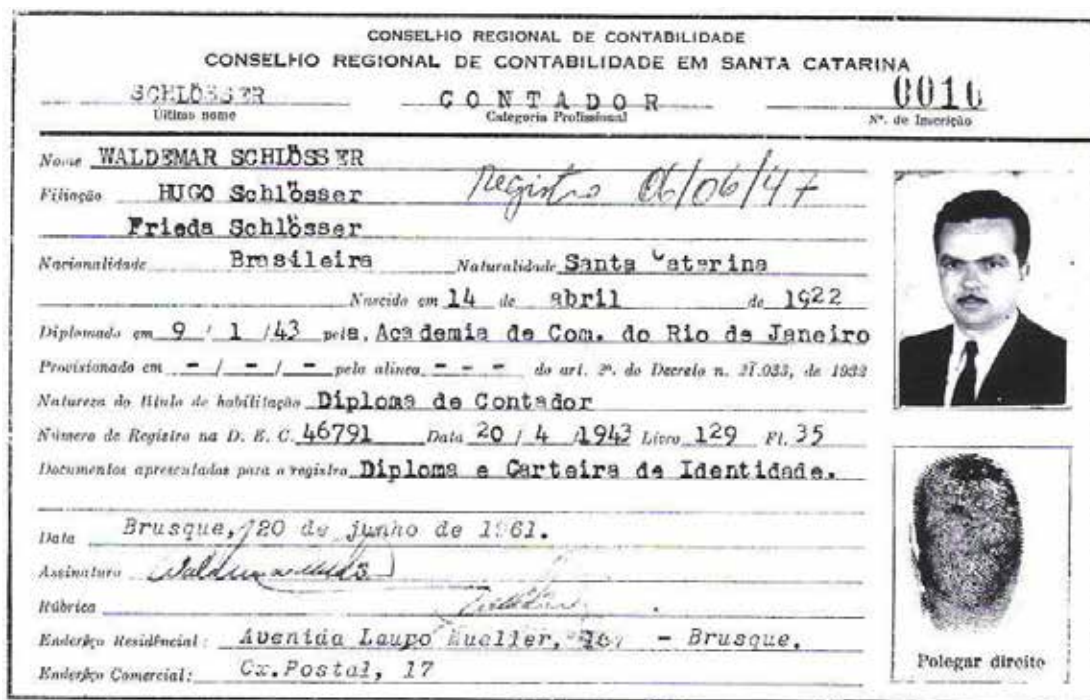 CONSELHO REGIONAL DE CONTABILIDADE
CONSELHO REGIONAL DE CONTABILIDADE EM SANTA CATARINA
SCHLÖSSER CONTADOR 0010
Último nome Categoria Profissional Nº. de Inscrição
Nome WALDEMAR SCHLÖSSER
Filiação HUGO Schlösser Registro 06/06/47
Frieda Schlösser
Nacionalidade Brasileira Naturalidade Santa Catarina
Nascido em 14 de abril de 1922
Diplomado em 9 / 1 /43 pela. Academia de Com. do Rio de Janeiro
Provisionado em - / - / - pela alínea - - - do art. 2º. do Decreto n. 21.033, de 1932
Natureza do título de habilitação Diploma de Contador
Número de Registro na D. E. C. 46791 Data 20 / 4 /1943 Livro 129 Fl. 35
Documentos apresentados para o registro Diploma e Carteira de Identidade.
Data Brusque, 20 de junho de 1961.
Assinatura
Rúbrica
Enderêço Residêncial: Avenida Lauro Mueller, - Brusque.
Enderêço Comercial: Cx.Postal, 17
Polegar direito